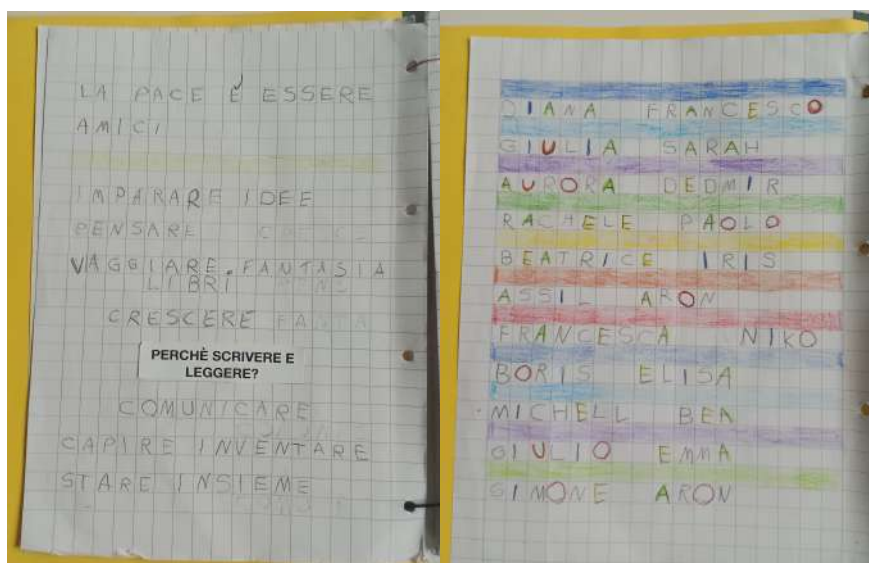 LA PACE È ESSERE
AMICI
IMPARARE IDEE
PENSARE
VAGGIARE. FANTASIA
LIBRI
CRESCERE
PERCHÈ SCRIVERE E
LEGGERE?
COMUNICARE
CAPIRE INVENTARE
STARE INSIEME
DIANA FRANCESCO
GIULIA SARAH
AURORA DEDMIR
RACHELE PAOLO
BEATRICE IRIS
ASSIL ARON
FRANCESCA NIKO
BORIS ELISA
MICHELL BEA
GIULIO EMMA
SIMONE ARON